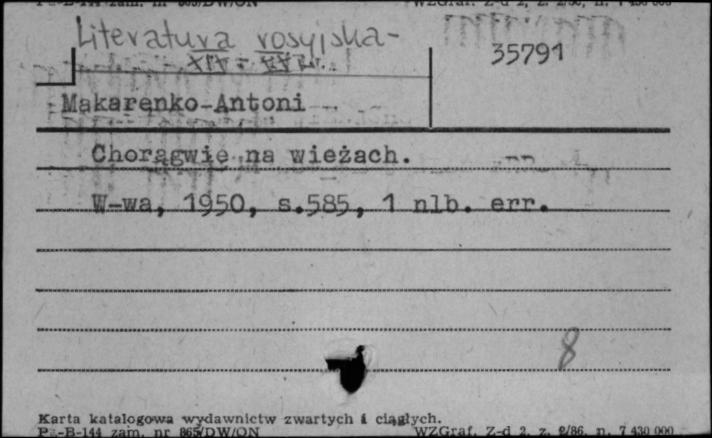 Pu-B-144 zam. nr 865/DW/ON WZGraf. Z-d 2, z. 2/86, n. 7 430 000
Literatura rosyjska -
35791
Makarenko-Antoni
Chorągwie na wieżach.
W-wa, 1950, s.585, 1 nlb. err.
8
Karta katalogowa wydawnictw zwartych i ciągłych.
Pu-B-144 zam. nr 865/DW/ON WZGraf. Z-d 2, z. 2/86, n. 7 430 000